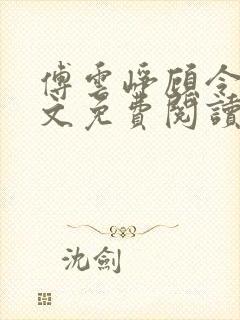 傅雲崢顧令
文免費閱讀
沈劍